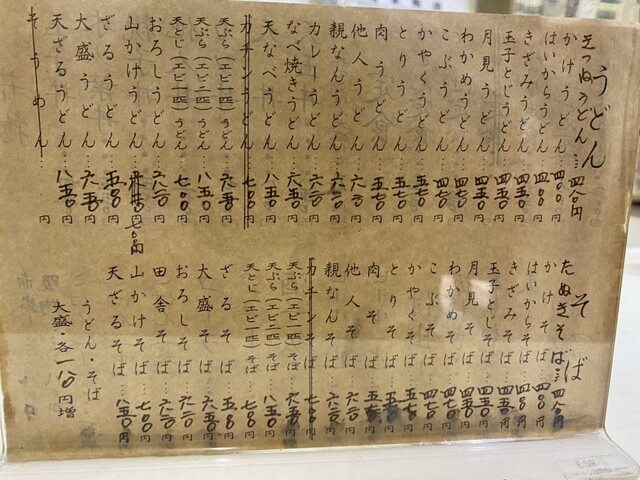 うどん
きつねうどん…四八〇円
かけうどん…四〇〇円
はいからうどん…四〇〇円
きざみうどん…四五〇円
玉子とじうどん…四五〇円
月見うどん…四五〇円
わかめうどん…四七〇円
こぶうどん…四七〇円
かやくうどん…五七〇円
とりうどん…五五〇円
肉うどん…五七〇円
他人うどん…六二〇円
親なんうどん…六二〇円
カレーうどん…六二〇円
なべ焼きうどん…六五〇円
天なべうどん…八五〇円
カチンうどん…七〇〇円
天ぷら（エビ一匹）うどん…六五〇円
天ぷら（エビ二匹）うどん…八五〇円
天とじ（エビ一匹）うどん…七〇〇円
おろしうどん…六二〇円
山かけうどん…七〇〇円
ざるうどん…五五〇円
大盛うどん…六五〇円
天ざるうどん…八五〇円
そうめん…円
そば
たぬきそば…四八〇円
かけそば…四〇〇円
はいからそば…四〇〇円
きざみそば…四五〇円
玉子とじそば…四五〇円
月見そば…四五〇円
わかめそば…四七〇円
こぶそば…四七〇円
かやくそば…五七〇円
とりそば…五五〇円
肉そば…五七〇円
他人そば…六二〇円
親なんそば…六二〇円
カチンそば…七〇〇円
天ぷら（エビ一匹）そば…六五〇円
天ぷら（エビ二匹）そば…八五〇円
天とじ（エビ一匹）そば…七〇〇円
ざるそば…五五〇円
大盛そば…六五〇円
おろしそば…六二〇円
田舎そば…六二〇円
山かけそば…七〇〇円
天ざるそば…八五〇円
うどん・そば
大盛・各一八〇円増